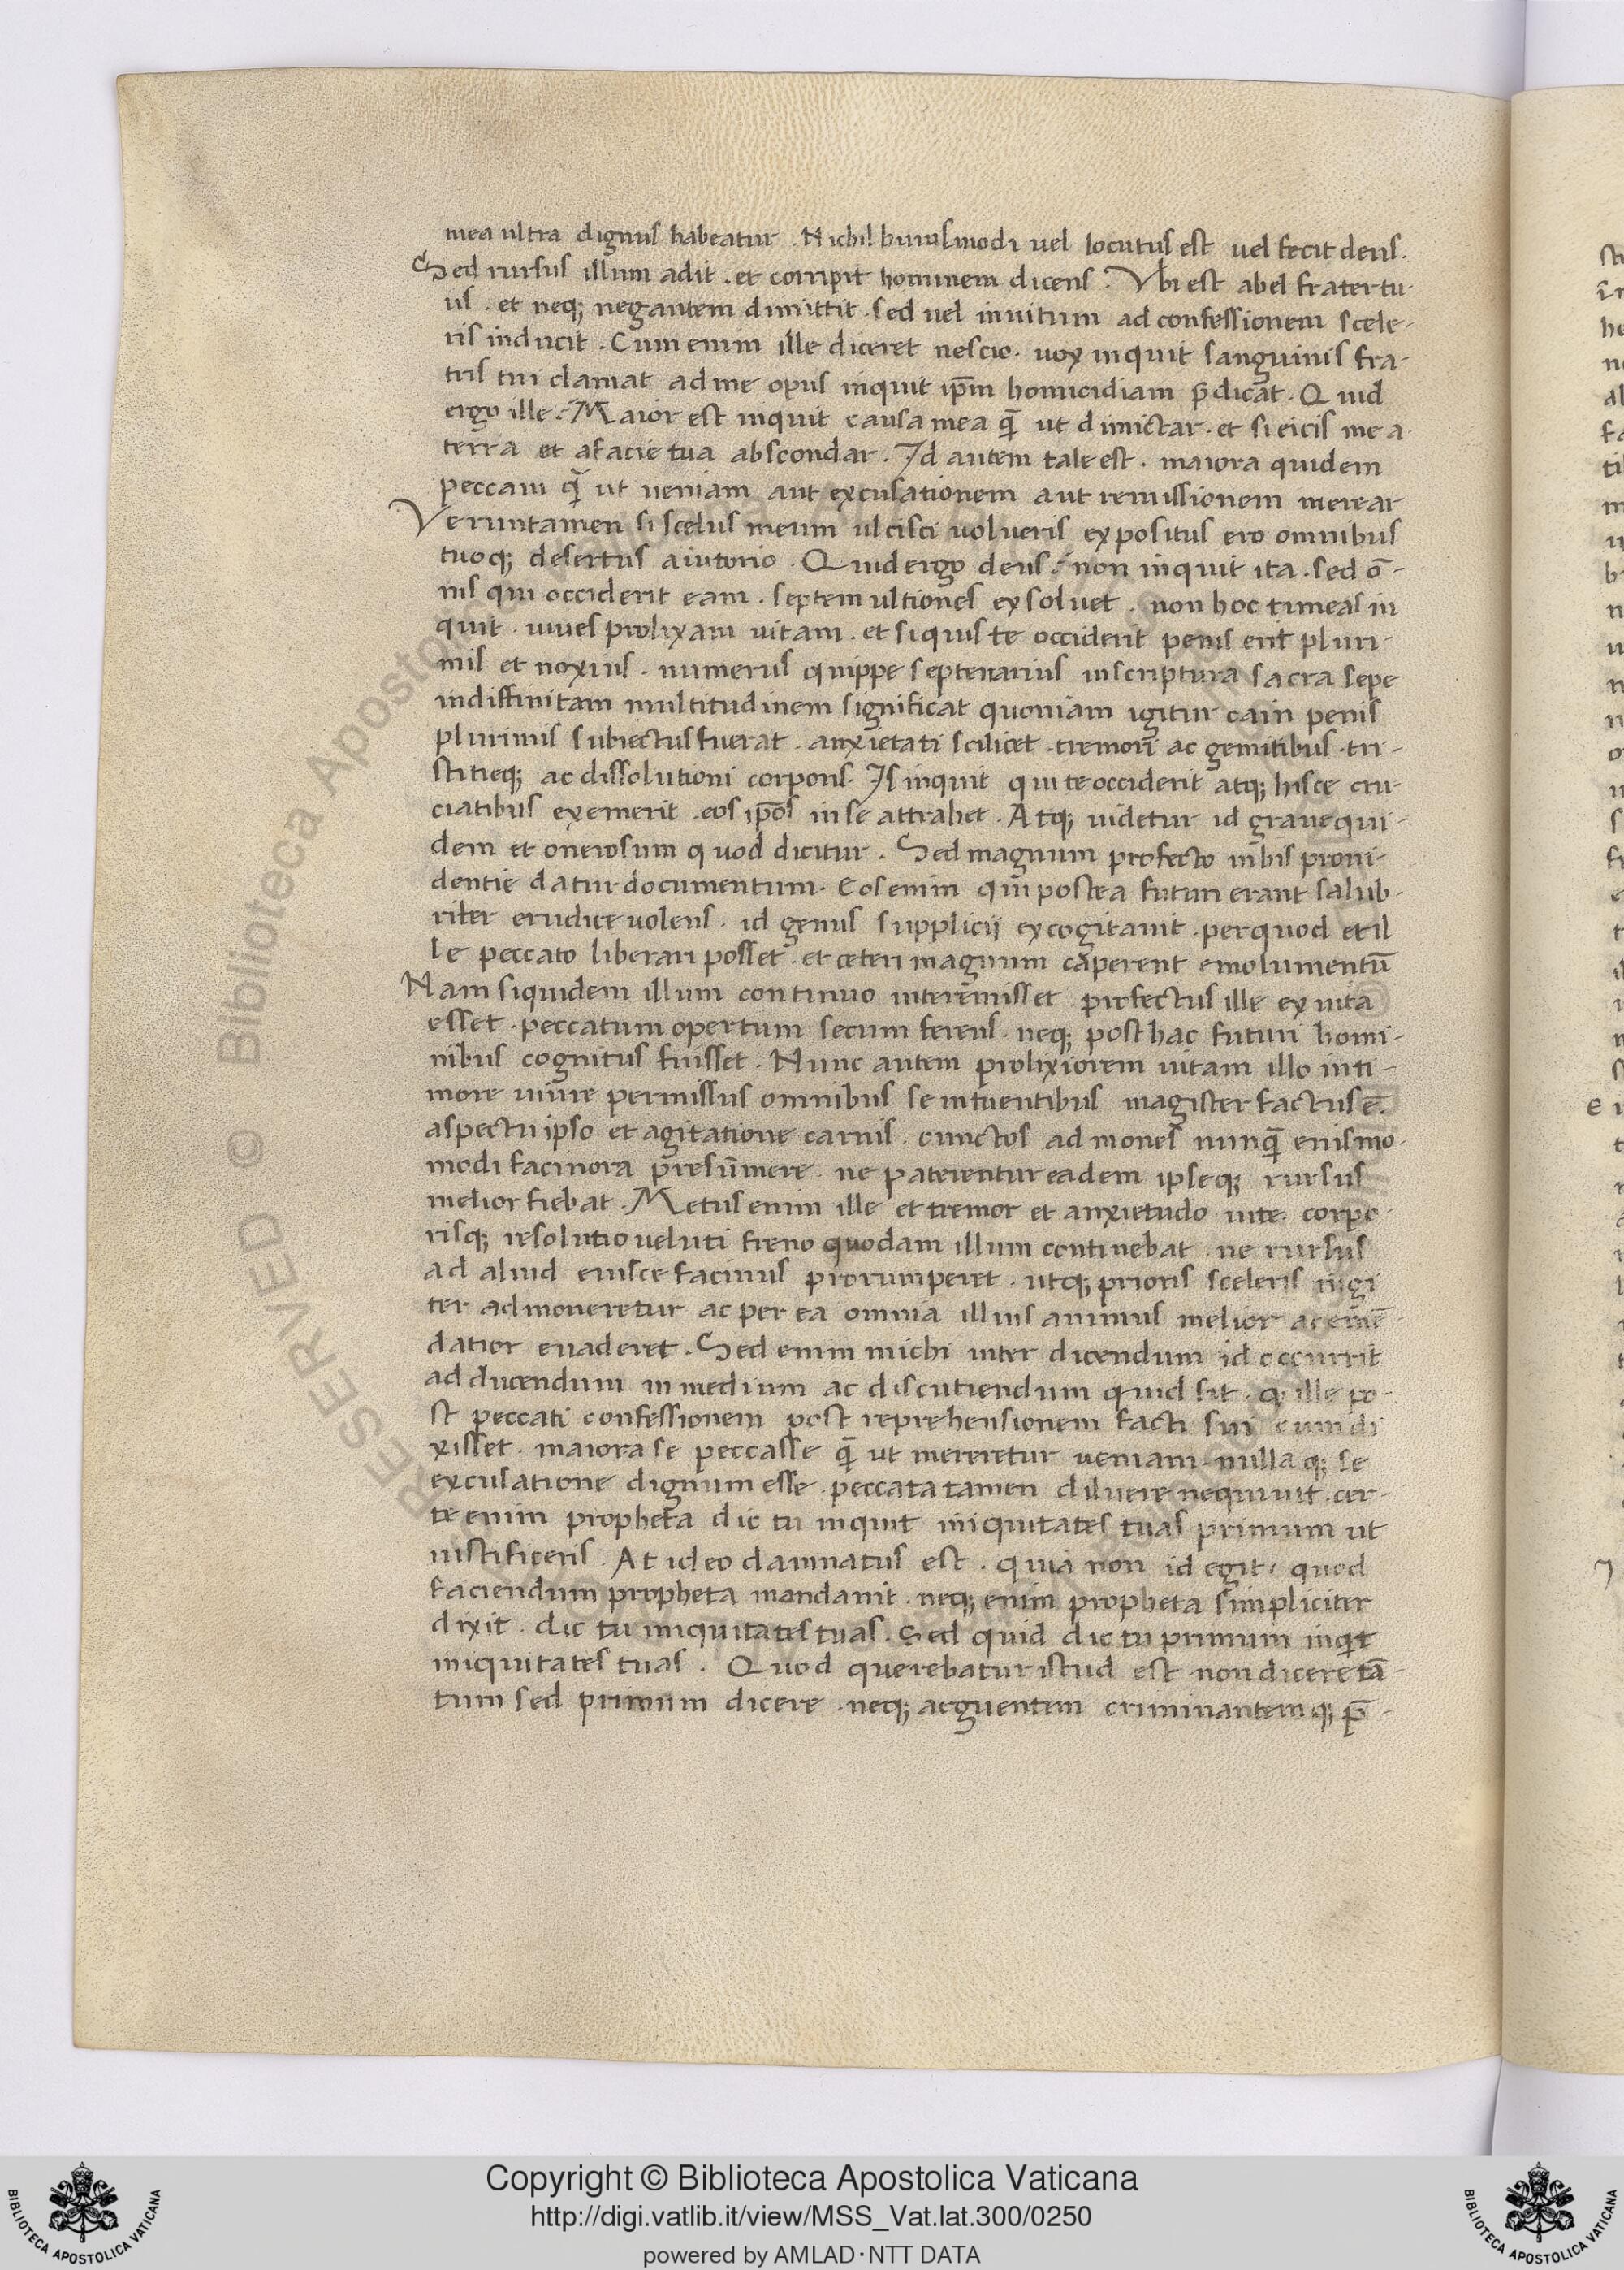 mea ultra dignus habeatur . Nichil huiusmodi uel locutus est uel fecit deus .
Sed rursus illum adit . et corripit hominem dicens . Vbi est abel frater tu-
us . et neq; negantem dimittit . sed uel inuitum ad confessionem scele-
ris inducit . Cum enim ille diceret nescio . uox inquit sanguinis fra-
tris tui clamat ad me opus inquit ip̄m homicidiam p̄dicat . Quid
ergo ille ? Maior est inquit causa mea q̄ ut dimictar . et si eicis me a
terra et a facie tua abscondar . Id autem tale est . maiora quidem
peccaui q̄ ut ueniam aut excusationem aut remissionem merear
Veruntamen si scelus meum ulcisci uolueris expositus ero omnibus
tuoq; desertus aiutorio . Quid ergo deus ? non inquit ita . sed ō-
nis qui occiderit eam . septem ultiones exsoluet . non hoc timeas in
quit . uiues prolixam uitam . et siquis te occiderit penis erit pluri-
mis et noxius . numerus quippe septenarius in scriptura sacra sepe
indiffinitam multitudinem significat quoniam igitur cain penis
plurimis subiectus fuerat . anxietati scilicet . tremori ac gemitibus . tri-
stitieq; ac dissolutioni corporis . Is inquit qui te occiderit atq; hisce cru-
ciatibus exemerit . eos ip̄os in se attrahet . Atq; uidetur id graue qui-
dem et onerosum quod dicitur . Sed magnum profecto nobis proui-
dentie datur documentum . Eos enim qui postea futuri erant salub-
riter erudire uolens . id genus supplicij excogitauit . per quod et il
le peccato liberari posset . et ceteri magnum caperent emolumentū
Nam siquidem illum continuo interemisset . profectus ille ex uita
esset . peccatum opertum secum ferens . neq; post hac futuri homi-
nibus cognitus fuisset . Nunc autem prolixiorem uitam illo inti-
more uiuere permissus omnibus se intuentibus magister factus ē .
aspectu ipso et agitatione carnis . cunctos admones nunq̄ enismo-
modi facinora presumere . ne paterentur eadem ipseq; rursus
melior fiebat . Metus enim ille et tremor et anxietudo uite . corpo-
risq; resolutio ueluti freno quodam illum continebat . ne rursus
ad aliud eiusce facinus prorumperet . utq; prioris sceleris iugi
ter admoneretur ac per ea omnia illius animus melior ac emē-
datior euaderet . Sed enim michi inter dicendum id occurrit
adducendum in medium ac discutiendum quid sit . q; ille po-
st peccati confessionem post reprehensionem facti sui cum di
xisset . maiora se peccasse q̄ ut mereretur ueniam . nullaq; se
excusatione dignum esse . peccata tamen diluere nequiuit . cer-
te enim propheta dic tu inquit iniquitates tuas primum ut
iustificeris . At ideo damnatus est . quia non id egit , quod
faciendum propheta mandauit . neq; enim propheta simpliciter
dixit . dic tu iniquitates tuas . Sed quid dic tu primum inqt
iniquitates tuas . Quod querebatur istud est non dicere tā-
tum sed primum dicere . neq; arguentem criminantemq; p̄-
Copyright © Biblioteca Apostolica Vaticana
http://digi.vatlib.it/view/MSS_Vat.lat.300/0250
powered by AMLAD·NTT DATA
BIBLIOTECA APOSTOLICA VATICANA
BIBLIOTECA APOSTOLICA VATICANA